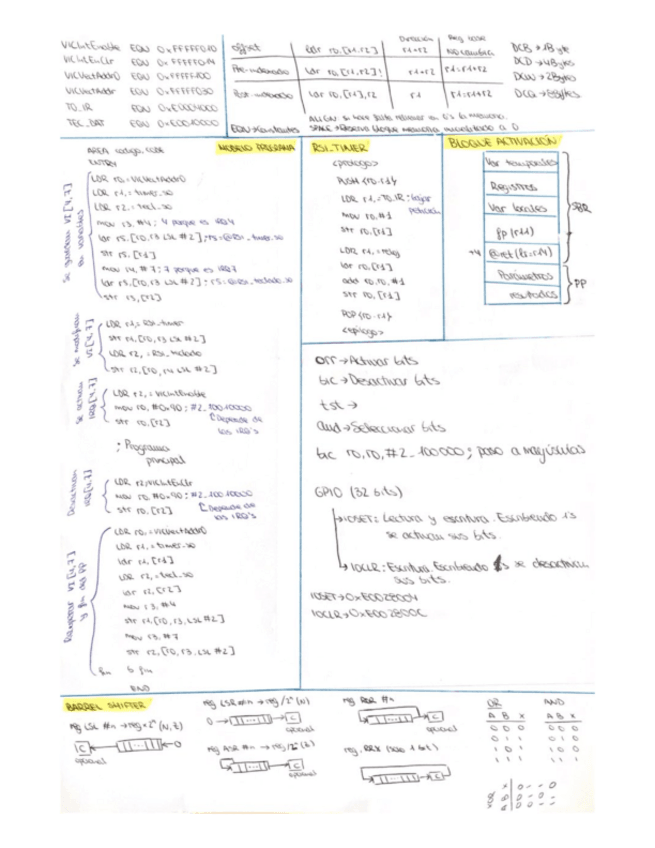 VICIntEnable EQU 0xFFFFF010
VICIntEnClr EQU 0xFFFFF014
VICVectAddr0 EQU 0xFFFFF100
VICVectAddr EQU 0xFFFFF030
T0_IR EQU 0xE0004000
TEC_DAT EQU 0xE0010000
Dirección Reg base
offset ldr r0,[r1,r2] r1+r2 No cambia
Pre-indexado ldr r0,[r1,r2]! r1+r2 r1=r1+r2
Post-indexado ldr r0,[r1],r2 r1 r1=r1+r2
EQU→Constantes
DCB → 1Byte
DCD → 4Bytes
DCW → 2Bytes
DCQ → 8Bytes
MODELO PROGRAMA
AREA codigo, CODE
ENTRY
Se guardan VI[4,7] en variables
LDR r0,=VICVectAddr0
LDR r1,=timer_so
LDR r2,=tecl_so
mov r3,#4; 4 porque es IRQ4
ldr r5,[r0,r3,LSL #2]
str r5,[r1]
mov r4,#7; 7 porque es IRQ7
str r5,[r2]
Se modifican VI[4,7]
LDR r1,=RSI_timer
str r1,[r0,r3,LSL #2]
LDR r2,=RSI_teclado
str r2,[r0,r4 LSL #2]
Se activan IRQ[4,7]
LDR r2,=VICIntEnable
mov r0,#0x90; #2_10010000
str r0,[r2]
Depende de los IRQ's
; Programa
principal
Desactivan IRQ[4,7]
LDR r2,VICIntEnClr
mov r0,#0x90; #2_10010000
str r0,[r2]
Depende de los IRQ's
VI[4,7] y fin del PP
LDR r0,=VICVectAddr0
LDR r1,=timer_so
ldr r1,[r1]
LDR r2,=tecl_so
ldr r2,[r2]
mov r3,#4
str r1,[r0,r3,LSL #2]
mov r3,#7
str r2,[r0,r3,LSL #2]
fin b fin
END
RSI_TIMER
<prólogo>
PUSH {r0-r1}
LDR r1,=T0_IR; bajar petición
mov r0,#1
str r0,[r1]
LDR r1,=reloj
ldr r0,[r1]
add r0,r0,#1
str r0,[r1]
POP {r0-r1}
<epílogo>
BLOQUE ACTIVACIÓN
Var temporales
Registros
Var locales
fp (r11)
+4 @ret (lr=r14)
Parámetros
resultados
SBR
PP
orr → Activar bits
bic → Desactivar bits
tst →
and → Seleccionar bits
bic r0,r0,#2_100000; paso a mayúsculas
GPIO (32 bits)
→ IOSET: Lectura y escritura. Escribiendo 1s
se activan sus bits.
→ IOCLR: Escritura. Escribiendo 1s se desactivan
sus bits.
IOSET→0xE0028004
IOCLR→0xE002800C
BARREL SHIFTER
reg LSL #n → reg×2ⁿ (N,Z)
C ← ← 0
opcional
reg LSR #n → reg/2ⁿ (N)
0 → → C
opcional
reg ASR #n → reg/2ⁿ (Z)
C
opcional
reg ROR #n
C
opcional
reg, RRX (solo 1 bit)
C
OR AND
A B X A B X
0 0 0 0 0 0
0 1 1 0 1 0
1 0 1 1 0 0
1 1 1 1 1 1
XOR
A B X
0 0 0
0 1 1
1 0 1
1 1 0